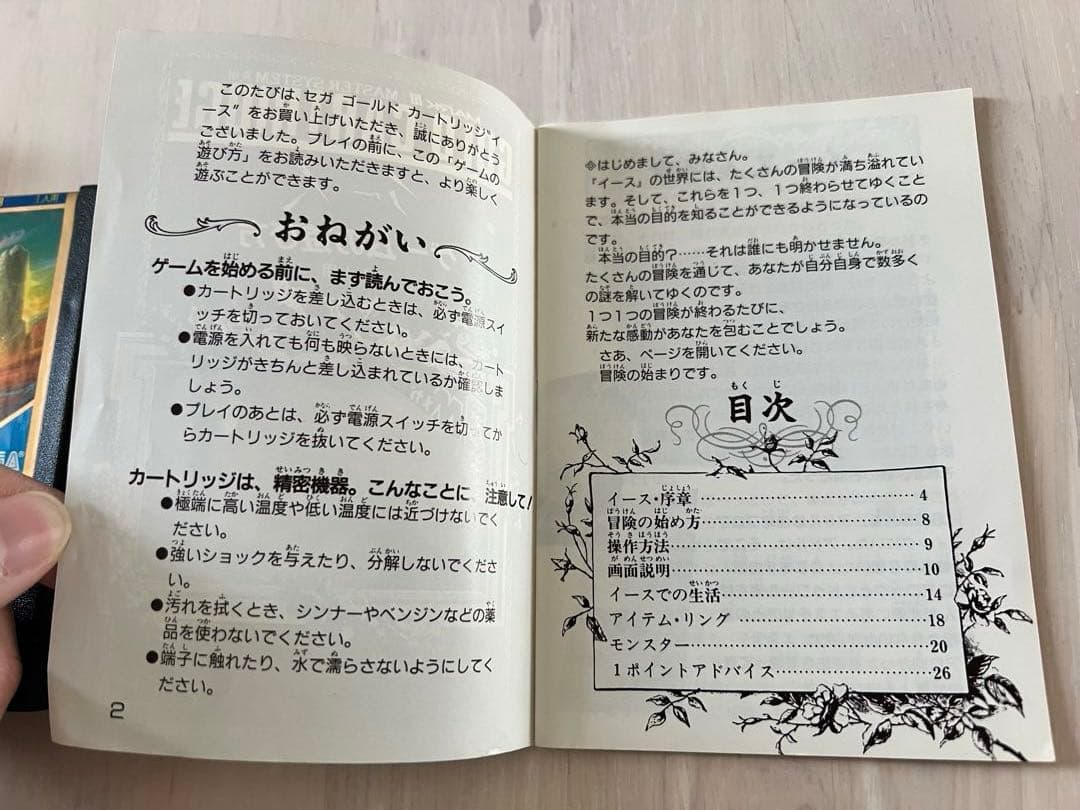 このたびは、セガ ゴールド カートリッジ"イ
ース"をお買い上げいただき、誠にありがとう
ございました。プレイの前に、この「ゲームの
遊び方」をお読みいただきますと、より楽しく
遊ぶことができます。
おねがい
ゲームを始める前に、まず読んでおこう。
●カートリッジを差し込むときは、必ず電源スイ
ッチを切っておいてください。
●電源を入れても何も映らないときには、カート
リッジがきちんと差し込まれているか確認しま
しょう。
●プレイのあとは、必ず電源スイッチを切ってか
らカートリッジを抜いてください。
カートリッジは、精密機器。こんなことに、注意して!
●極端に高い温度や低い温度には近づけないでく
ださい。
●強いショックを与えたり、分解しないでくださ
い。
●汚れを拭くとき、シンナーやベンジンなどの薬
品を使わないでください。
●端子に触れたり、水で濡らさないようにしてく
ださい。
2
◈はじめまして、みなさん。
『イース』の世界には、たくさんの冒険が満ち溢れてい
ます。そして、これらを1つ、1つ終わらせてゆくこと
で、本当の目的を知ることができるようになっているの
です。
本当の目的?……それは誰にも明かせません。
たくさんの冒険を通じて、あなたが自分自身で数多く
の謎を解いてゆくのです。
1つ1つの冒険が終わるたびに、
新たな感動があなたを包むことでしょう。
さあ、ページを開いてください。
冒険の始まりです。
もくじ
目次
イース・序章……4
冒険の始め方……8
操作方法……9
画面説明……10
イースでの生活……14
アイテム・リング……18
モンスター……20
1ポイントアドバイス……26